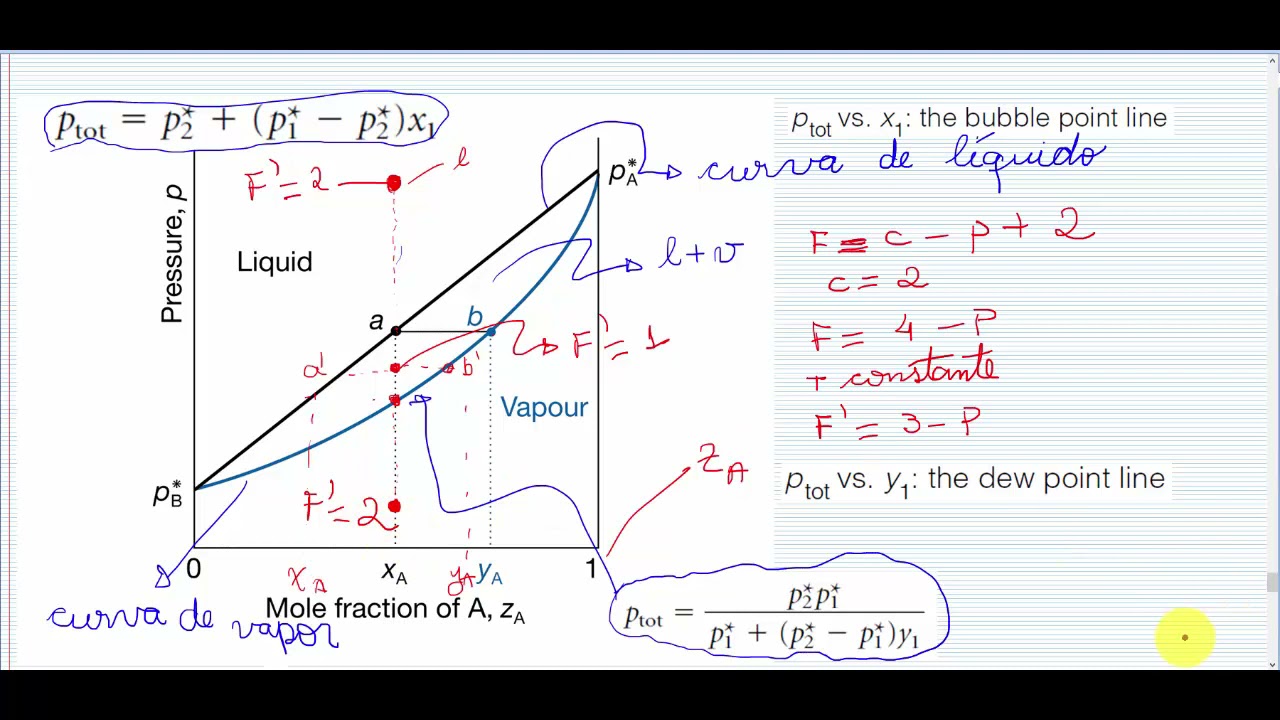 p_tot = p₂* + (p₁* − p₂*)x₁
p_tot vs. x₁: the bubble point line
curva de líquido
p_A*
F' = 2
l
Pressure, p
Liquid
l + v
F = c − p + 2
c = 2
F = 4 − P
T constante
F' = 3 − P
a
b
F' = 1
a'
b'
Vapour
z_A
p_tot vs. y₁: the dew point line
p_B*
F' = 2
0
x_A
x_A
y_A
y_A
1
Mole fraction of A, z_A
curva de vapor
p_tot = p₂*p₁* / p₁* + (p₂* − p₁*)y₁